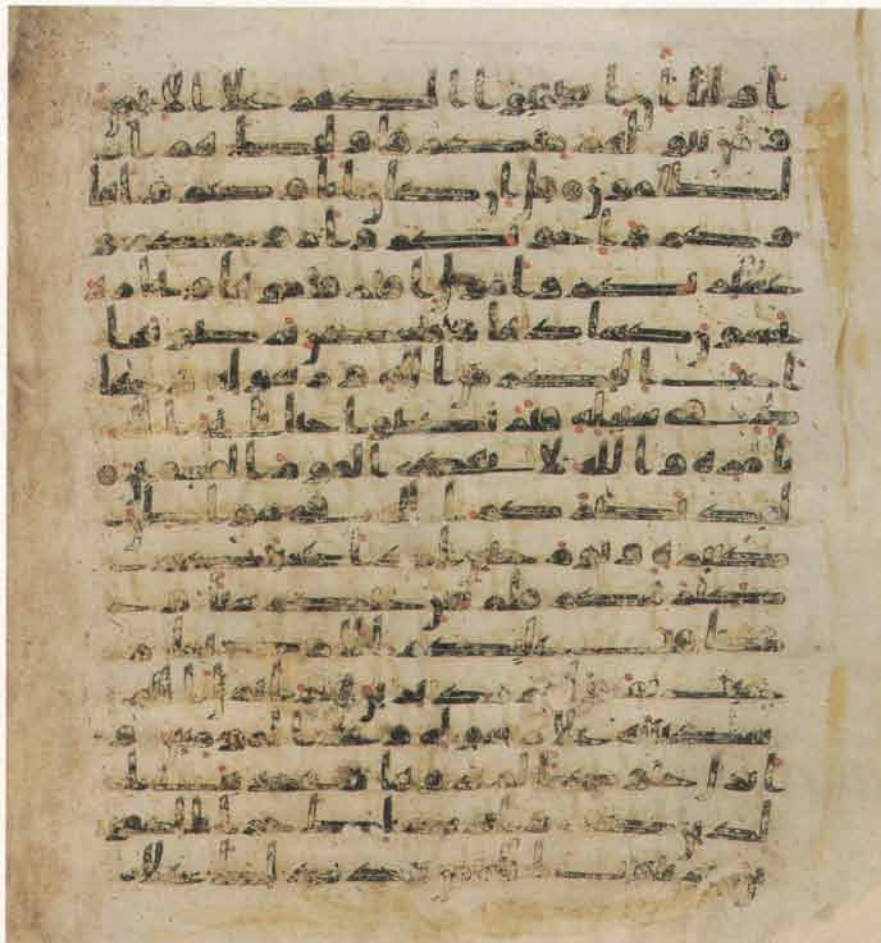 اوليا ان استحبوا الكفر على الايمن
ومن يتولهم منكم فاولئك هم ا
لظلمون قل ان كان اباوكم وابنا
وكم واخونكم وازوجكم و
عشيرتكم واموال اقترفتموها وتجرة
تخشون كسادها ومسكن ترضونها
احب اليكم من الله ورسوله وجها
د في سبيله فتربصوا حتى ياتي الله
بامره والله لا يهدي القوم الفسقين
لقد نصركم الله في مواطن
كثيرة ويوم حنين اذ اعجبتكم
كثرتكم فلم تغن عنكم شيا و
ضاقت عليكم الارض بما ر
حبت ثم وليتم مدبرين ثم انزل الله
سكينته على رسوله وعلى المومنين و
انزل جنودا لم تروها وعذب ا
لذين كفروا وذلك جزا الكفر
ين ثم يتوب الله من بعد ذلك على